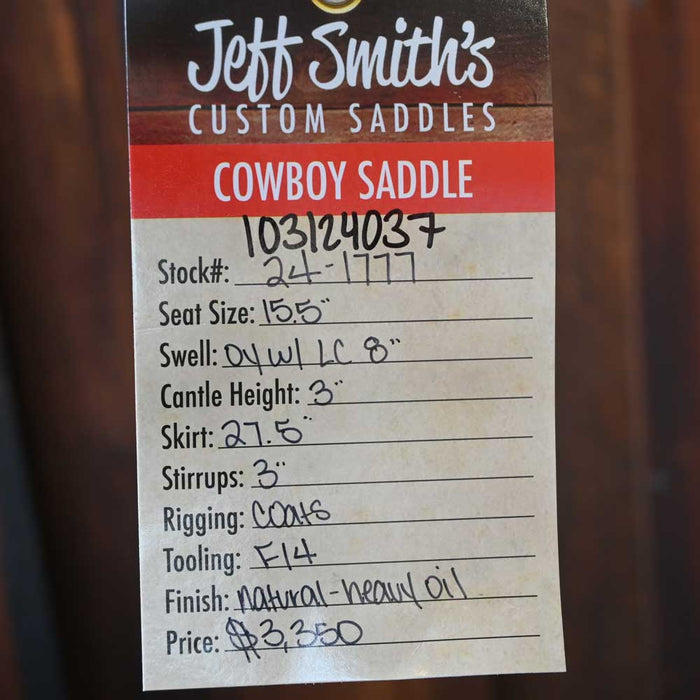 Jeff Smith's
CUSTOM SADDLES
COWBOY SADDLE
103124037
Stock#: 24-1777
Seat Size: 15.5"
Swell: OY w/ LC 8"
Cantle Height: 3"
Skirt: 27.5"
Stirrups: 3"
Rigging: Coats
Tooling: F14
Finish: natural-heavy oil
Price: $3,350